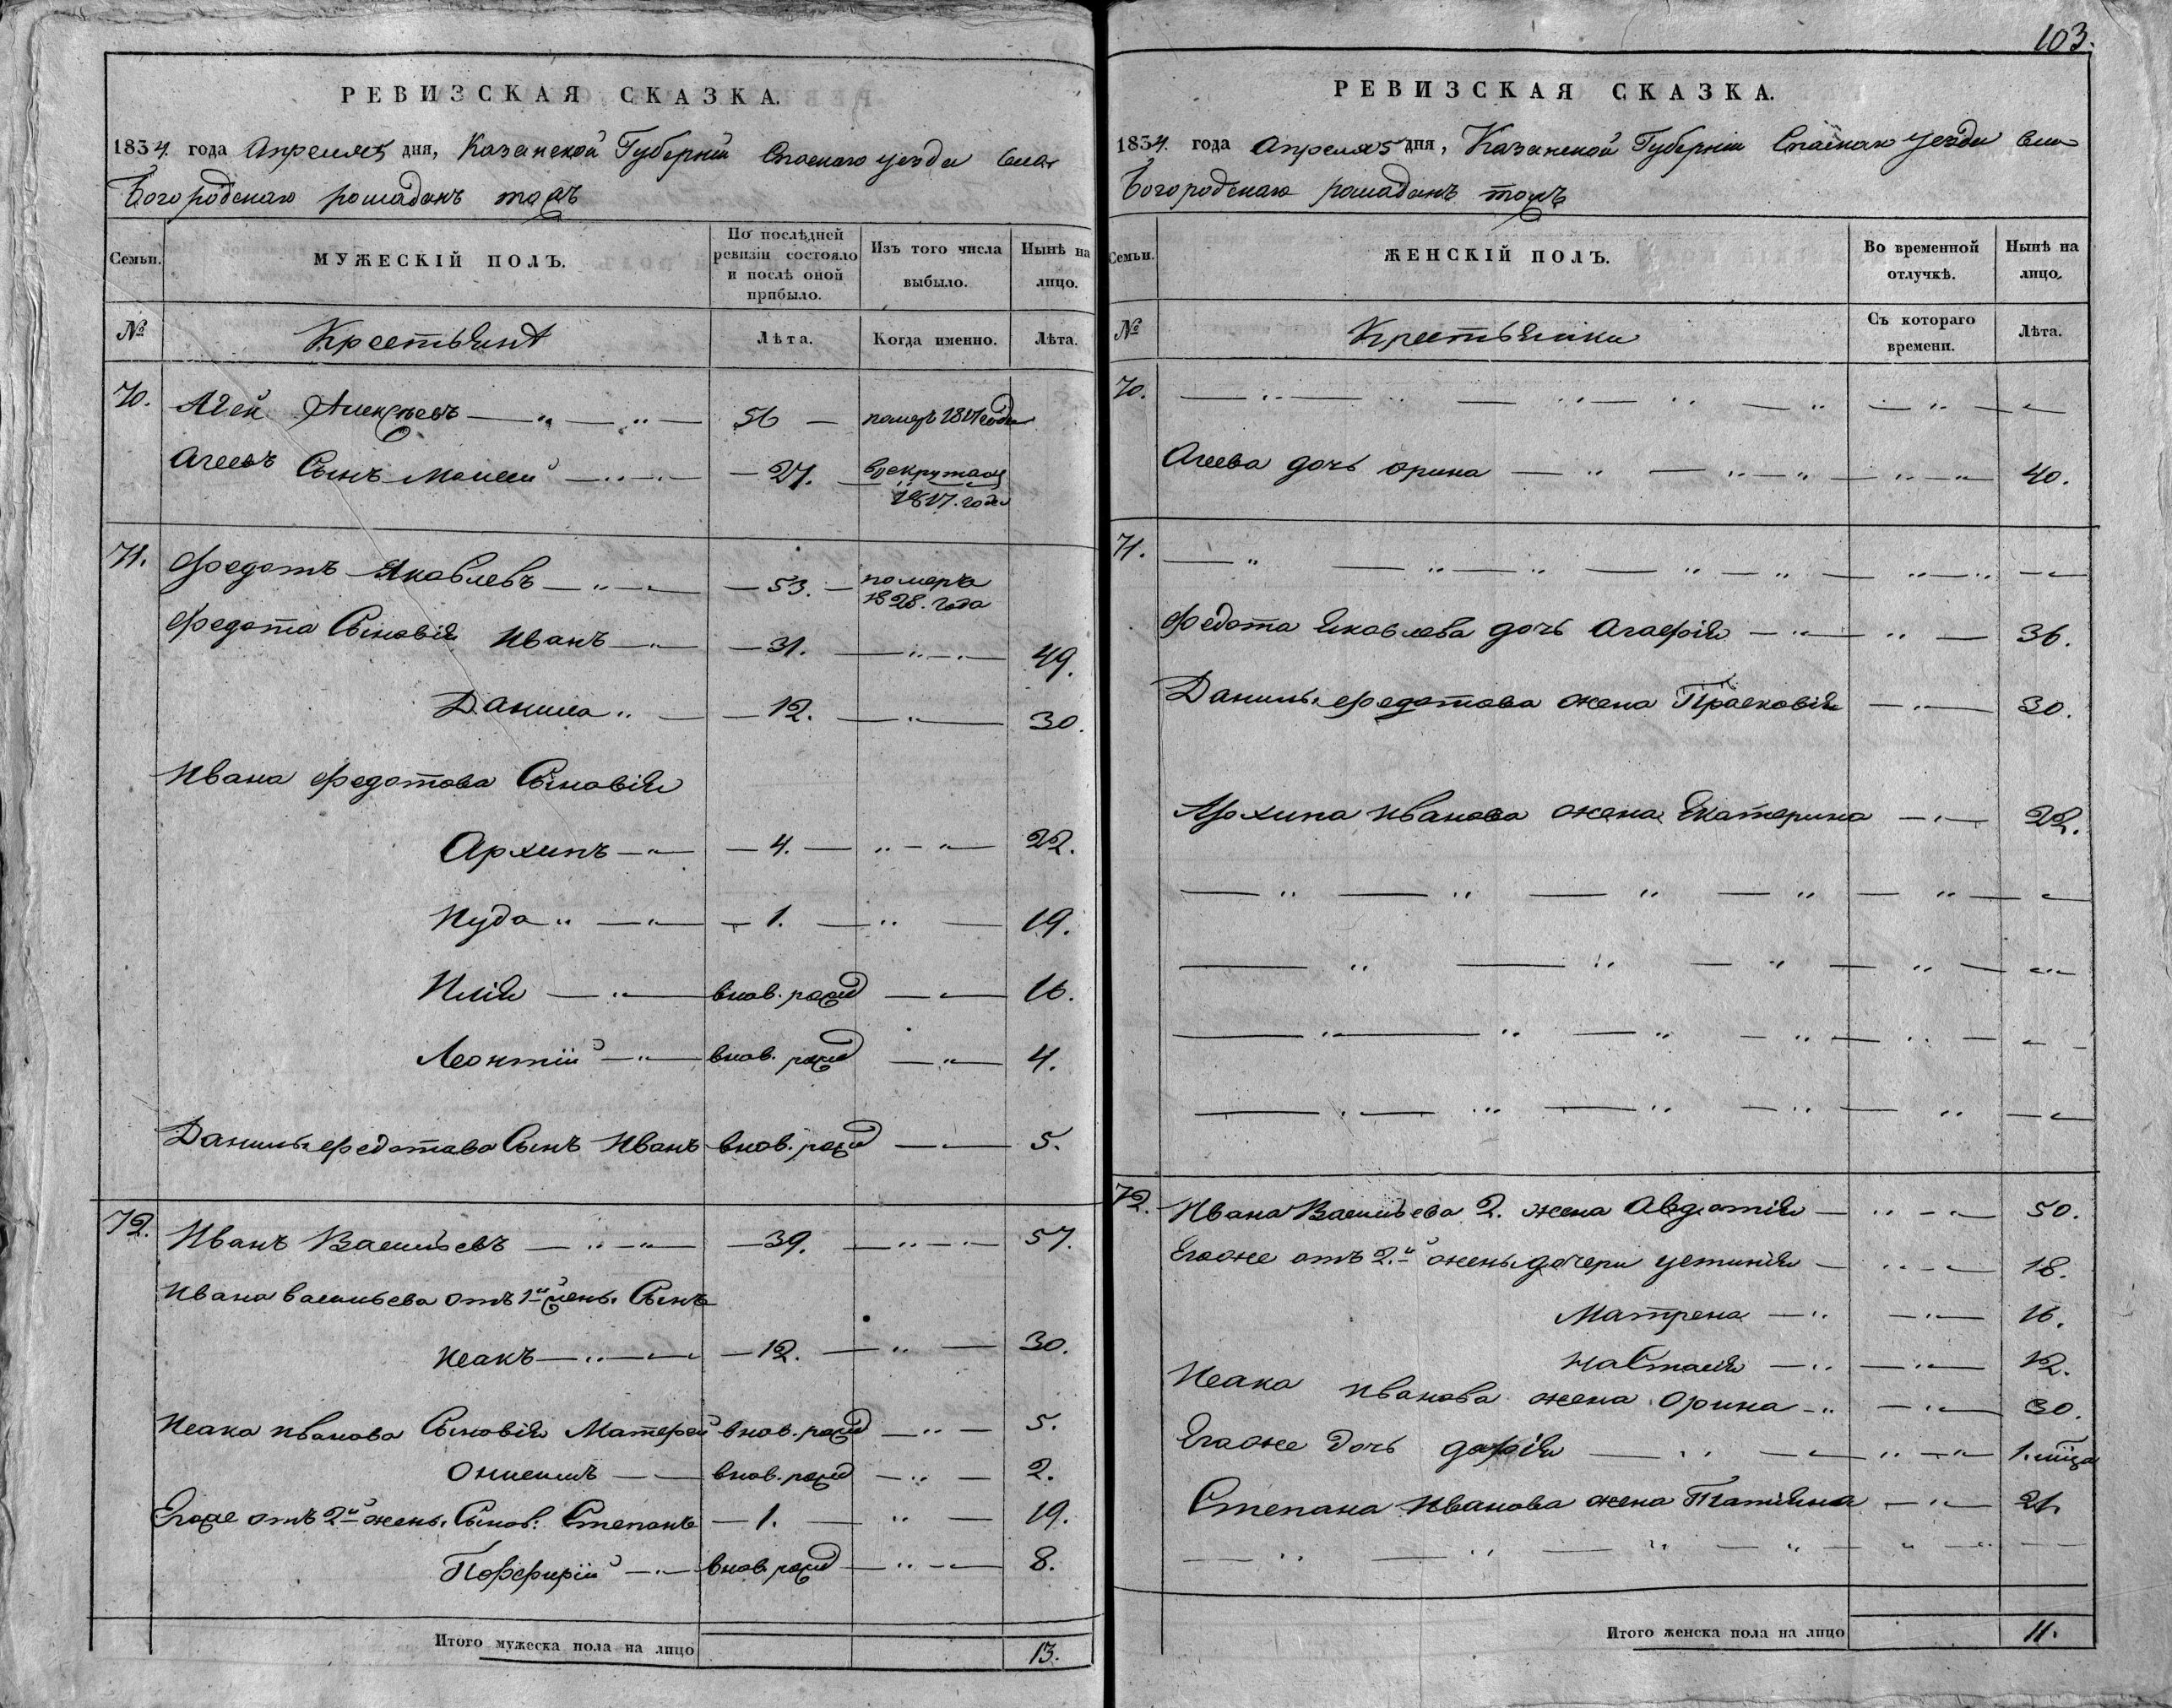 РЕВИЗСКАЯ СКАЗКА.
1834. года Апреля 5 дня, Казанской Губернiи Спаскаго уезда Села
Богородскаго рошадакъ тожъ
Семьи.
МУЖЕСКІЙ ПОЛЪ.
По послѣдней ревизіи состояло и послѣ оной прибыло.
Изъ того числа выбыло.
Нынѣ на лицо.
№
Крестьянѣ
Лѣта.
Когда именно.
Лѣта.
70. Агей Алексѣевъ — „ — „ — 56 — померъ года
Агеевъ Сынъ Моисей — „ — „ — 27. врекрутахъ
1817. года
71. Федотъ Яковлевъ — „ — „ — 53. — померъ
1828. года
Федота Сыновiя Иванъ — „ — 31. — „ — „ — 49.
Данила „ — 12. — „ — 30.
Ивана Федотова Сыновiя
Архипъ — „ — 4. — „ — „ — 22.
Иуда „ — „ — 1. — „ — 19.
Илiя — „ — внов. рожд — „ — 16.
Леонтiй — „ — внов. рожд — „ — 4.
Данилы Федотова Сынъ Иванъ внов. рожд — „ — 5.
72. Иванъ Васильевъ — „ — „ — 39. — „ — „ — 57.
Ивана васильева отъ 1й жены Сынъ
Исакъ — „ — „ — 12. — „ — 30.
Исака иванова Сыновiя Матфей внов. рожд — „ — 5.
Онисимъ — внов. рожд — „ — 2.
Егоже отъ 2й жены Сынов: Степанъ — 1. — „ — 19.
Порфирiй — „ — внов. рожд — „ — „ — 8.
Итого мужеска пола на лицо 13.
103.
РЕВИЗСКАЯ СКАЗКА.
1834. года Апреля 5 дня, Казанской Губернiи Спаскаго уезда Села
Богородскаго рошадакъ тожъ
Семьи.
ЖЕНСКІЙ ПОЛЪ.
Во временной отлучкѣ.
Нынѣ на лицо.
№
Крестьянки
Съ котораго времени.
Лѣта.
70. — „ — „ — „ — „ — „ — „ —
Агеева дочь орина — „ — „ — „ — „ — „ — 40.
71. — „ — „ — „ — „ — „ — „ — „ —
Федота Яковлева дочь Агафiя — „ — „ — 36.
Данилы Федотова жена Прасковiя — „ — 30.
Архипа иванова жена Екатерина — „ — 22.
— „ — „ — „ — „ — „ — „ —
— „ — „ — „ — „ — „ —
— „ — „ — „ — „ — „ — „ —
— „ — „ — „ — „ — „ — „ —
72. Ивана Васильева 2. жена Авдотiя — „ — „ — 50.
Егоже отъ 2.й жены дочери устинiя — „ — „ — 18.
Матрена — „ — „ — 16.
наСтасiя — „ — „ — 12.
Исака иванова жена Орина — „ — „ — 30.
Егоже дочь дарiя — „ — „ — „ — „ — 1. мѣца
Степана иванова жена Татiяна — „ — 21.
— „ — „ — „ — „ — „ — „ —
Итого женска пола на лицо 11.